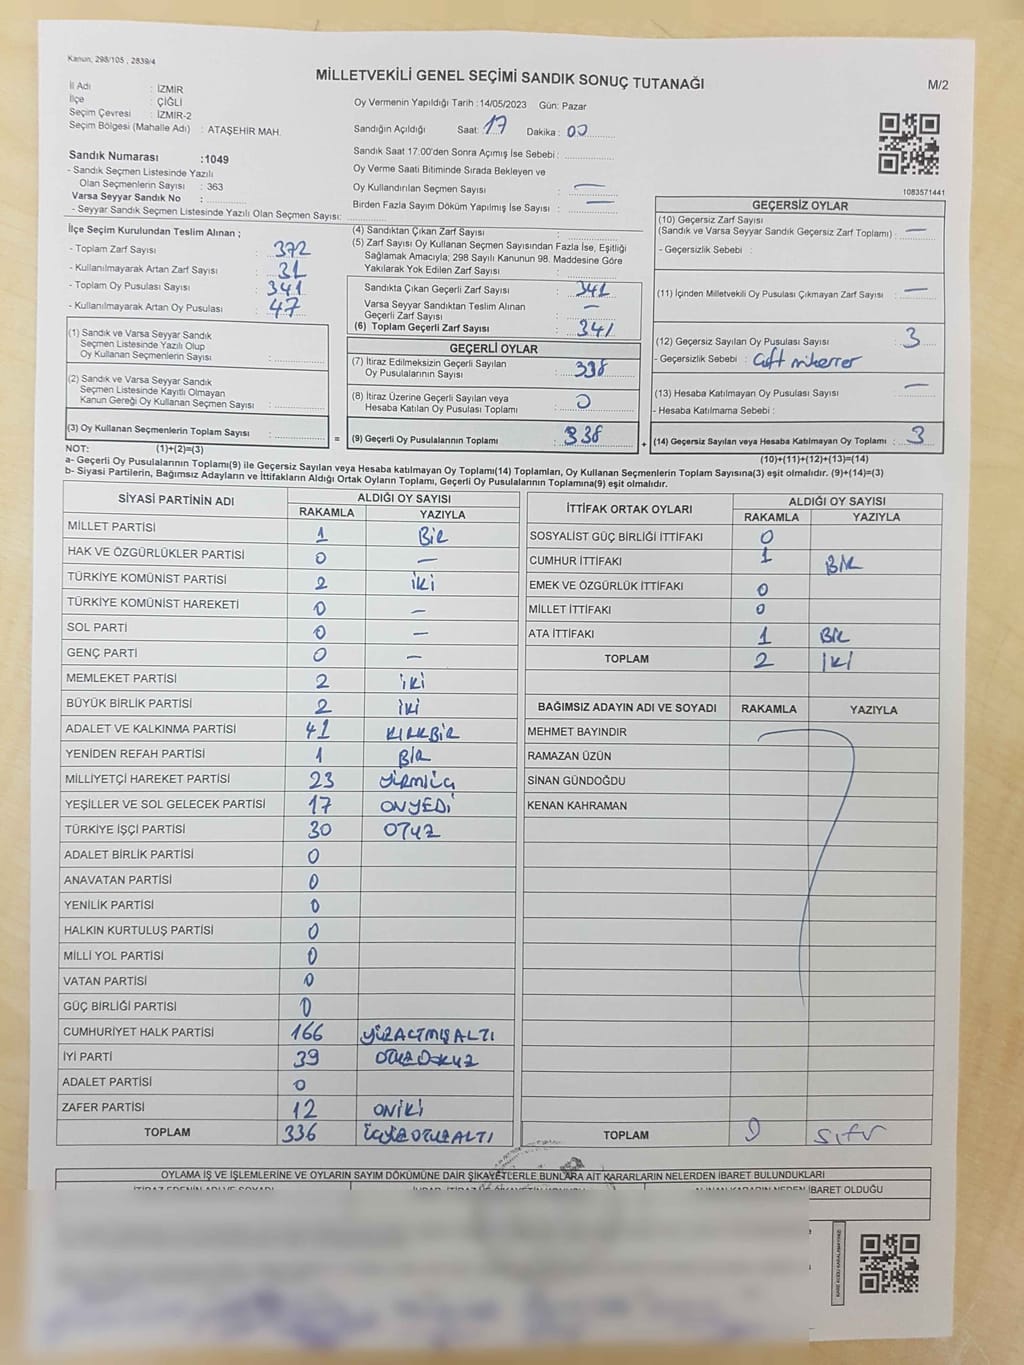 Kanun, 298/105 , 2839/4
MİLLETVEKİLİ GENEL SEÇİMİ SANDIK SONUÇ TUTANAĞI
M/2
İl Adı : İZMİR
İlçe : ÇİĞLİ
Seçim Çevresi : İZMİR-2
Seçim Bölgesi (Mahalle Adı) : ATAŞEHİR MAH.
Oy Vermenin Yapıldığı Tarih :14/05/2023 Gün: Pazar
Sandığın Açıldığı Saat: 17 Dakika : 00
Sandık Saat 17:00'den Sonra Açımış İse Sebebi :
Oy Verme Saati Bitiminde Sırada Bekleyen ve
Oy Kullandırılan Seçmen Sayısı : —
Birden Fazla Sayım Döküm Yapılmış İse Sayısı : —
Sandık Numarası :1049
- Sandık Seçmen Listesinde Yazılı
Olan Seçmenlerin Sayısı : 363
Varsa Seyyar Sandık No :
- Seyyar Sandık Seçmen Listesinde Yazılı Olan Seçmen Sayısı:
1083571441
İlçe Seçim Kurulundan Teslim Alınan ;
- Toplam Zarf Sayısı : 372
- Kullanılmayarak Artan Zarf Sayısı : 31
- Toplam Oy Pusulası Sayısı : 341
- Kullanılmayarak Artan Oy Pusulası : 47
(1) Sandık ve Varsa Seyyar Sandık
Seçmen Listesinde Yazılı Olup
Oy Kullanan Seçmenlerin Sayısı :
(2) Sandık ve Varsa Seyyar Sandık
Seçmen Listesinde Kayıtlı Olmayan
Kanun Gereği Oy Kullanan Seçmen Sayısı :
(3) Oy Kullanan Seçmenlerin Toplam Sayısı :
(4) Sandıktan Çıkan Zarf Sayısı :
(5) Zarf Sayısı Oy Kullanan Seçmen Sayısından Fazla İse, Eşitliği
Sağlamak Amacıyla; 298 Sayılı Kanunun 98. Maddesine Göre
Yakılarak Yok Edilen Zarf Sayısı :
Sandıkta Çıkan Geçerli Zarf Sayısı : 341
Varsa Seyyar Sandıktan Teslim Alınan
Geçerli Zarf Sayısı : —
(6) Toplam Geçerli Zarf Sayısı : 341
GEÇERLİ OYLAR
(7) İtiraz Edilmeksizin Geçerli Sayılan
Oy Pusulalarının Sayısı : 338
(8) İtiraz Üzerine Geçerli Sayılan veya
Hesaba Katılan Oy Pusulası Toplamı : 0
= (9) Geçerli Oy Pusulalarının Toplamı : 338
GEÇERSİZ OYLAR
(10) Geçersiz Zarf Sayısı
(Sandık ve Varsa Seyyar Sandık Geçersiz Zarf Toplamı) : —
- Geçersizlik Sebebi :
(11) İçinden Milletvekili Oy Pusulası Çıkmayan Zarf Sayısı : —
(12) Geçersiz Sayılan Oy Pusulası Sayısı : 3
- Geçersizlik Sebebi : Çift mükerrer
(13) Hesaba Katılmayan Oy Pusulası Sayısı : —
- Hesaba Katılmama Sebebi :
+ (14) Geçersiz Sayılan veya Hesaba Katılmayan Oy Toplamı : 3
NOT: (1)+(2)=(3)
(10)+(11)+(12)+(13)=(14)
a- Geçerli Oy Pusulalarının Toplamı(9) ile Geçersiz Sayılan veya Hesaba katılmayan Oy Toplamı(14) Toplamları, Oy Kullanan Seçmenlerin Toplam Sayısına(3) eşit olmalıdır. (9)+(14)=(3)
b- Siyasi Partilerin, Bağımsız Adayların ve İttifakların Aldığı Ortak Oyların Toplamı, Geçerli Oy Pusulalarının Toplamına(9) eşit olmalıdır.
SİYASİ PARTİNİN ADI ALDIĞI OY SAYISI
RAKAMLA YAZIYLA
MİLLET PARTİSİ 1 BİR
HAK VE ÖZGÜRLÜKLER PARTİSİ 0 —
TÜRKİYE KOMÜNİST PARTİSİ 2 İKİ
TÜRKİYE KOMÜNİST HAREKETİ 0 —
SOL PARTİ 0 —
GENÇ PARTİ 0 —
MEMLEKET PARTİSİ 2 İKİ
BÜYÜK BİRLİK PARTİSİ 2 İKİ
ADALET VE KALKINMA PARTİSİ 41 KIRKBİR
YENİDEN REFAH PARTİSİ 1 BİR
MİLLİYETÇİ HAREKET PARTİSİ 23 YİRMİÜÇ
YEŞİLLER VE SOL GELECEK PARTİSİ 17 ONYEDİ
TÜRKİYE İŞÇİ PARTİSİ 30 OTUZ
ADALET BİRLİK PARTİSİ 0
ANAVATAN PARTİSİ 0
YENİLİK PARTİSİ 0
HALKIN KURTULUŞ PARTİSİ 0
MİLLİ YOL PARTİSİ 0
VATAN PARTİSİ 0
GÜÇ BİRLİĞİ PARTİSİ 0
CUMHURİYET HALK PARTİSİ 166 YÜZALTMIŞALTI
İYİ PARTİ 39 OTUZDOKUZ
ADALET PARTİSİ 0
ZAFER PARTİSİ 12 ONİKİ
TOPLAM 336 ÜÇYÜZOTUZALTI
İTTİFAK ORTAK OYLARI ALDIĞI OY SAYISI
RAKAMLA YAZIYLA
SOSYALİST GÜÇ BİRLİĞİ İTTİFAKI 0
CUMHUR İTTİFAKI 1 BİR
EMEK VE ÖZGÜRLÜK İTTİFAKI 0
MİLLET İTTİFAKI 0
ATA İTTİFAKI 1 BİR
TOPLAM 2 İKİ
BAĞIMSIZ ADAYIN ADI VE SOYADI RAKAMLA YAZIYLA
MEHMET BAYINDIR
RAMAZAN ÜZÜN
SİNAN GÜNDOĞDU
KENAN KAHRAMAN
TOPLAM 0 Sıfır
OYLAMA İŞ VE İŞLEMLERİNE VE OYLARIN SAYIM DÖKÜMÜNE DAİR ŞİKAYETLERLE BUNLARA AİT KARARLARIN NELERDEN İBARET BULUNDUKLARI
İTİRAZ EDENİN ADI VE SOYADI
ALINAN KARARIN NEDEN İBARET OLDUĞU